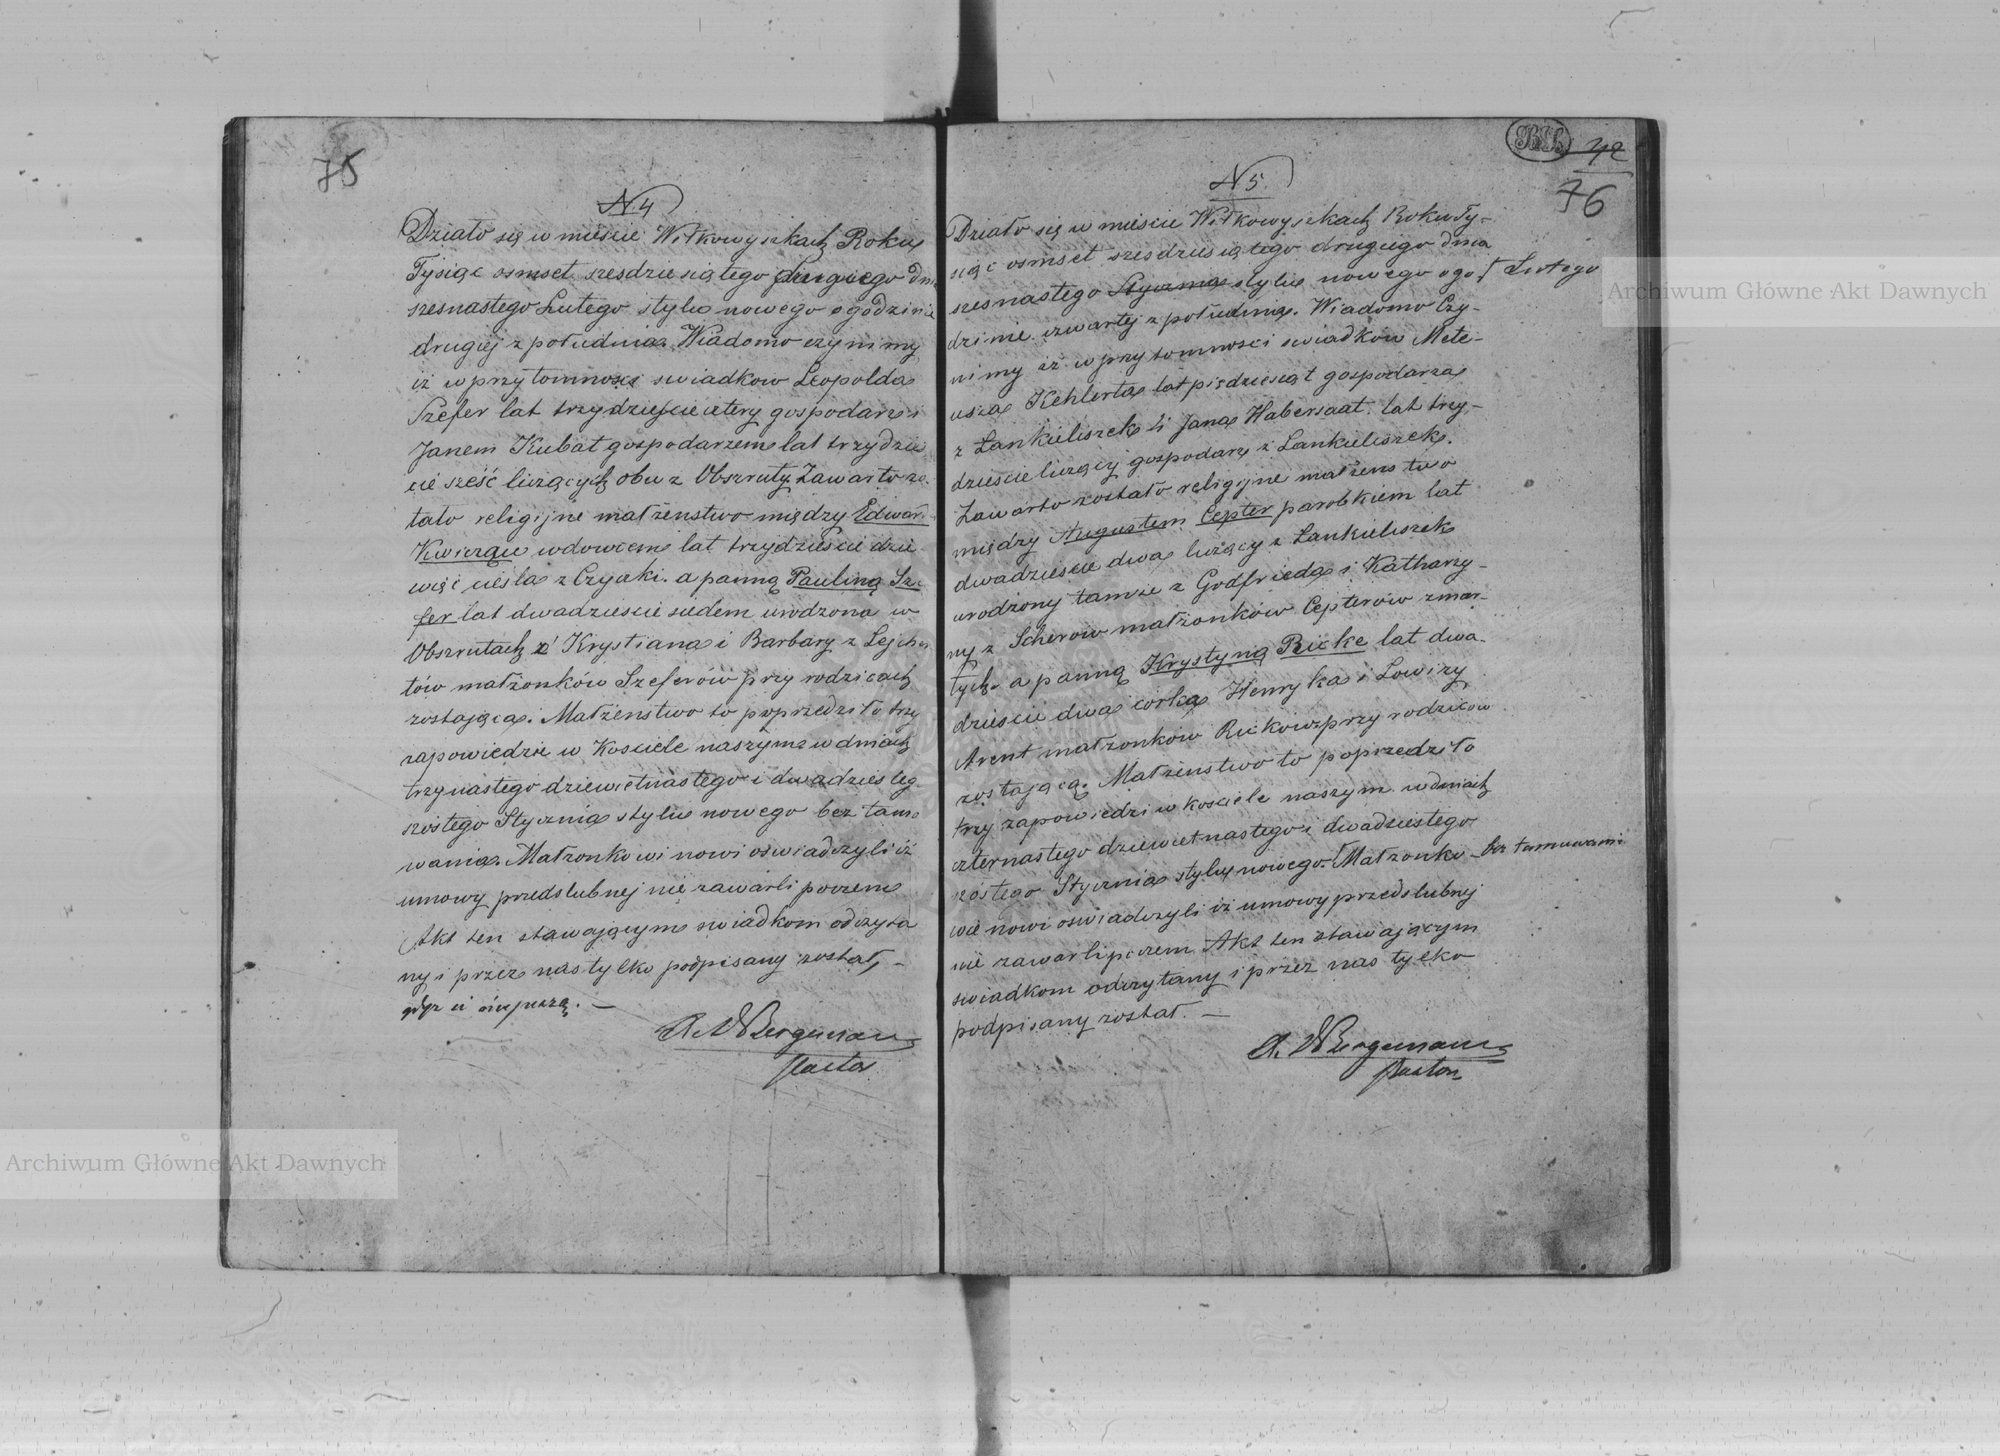 75
N 4
Działo się w mieście Wiłkowyszkach Roku
Tysiąc osmset szesdziesiątego drugiego dnia
szesnastego Lutego stylu nowego o godzinie
drugiej z południa. Wiadomo czynimy
iż w przytomności swiadkow Leopolda
Szefer lat trzydzieście cztery gospodarz i
Janem Kubat gospodarzem lat trzydzie
cie sześć liczących obu z Obszruty. Zawarto zo
tało religijne małżenstwo między Edwar
wdowcem lat trzydzieście dzie
więć cieśla z Czyżki. a panną Pauliną Sze
fer lat dwadzieście siedem urodzona w
Obszrutach z Krystiana i Barbary z Lejch
tów małżonków Szeferów przy rodzicach
zostająca. Małżenstwo to poprzedziło trzy
zapowiedzie w Kosciele naszym w dniach
trzynastego dziewietnastego i dwadziesteg
szóstego Stycznia stylu nowego bez tamo
wania. Małzonkowi nowi oswiadczyli iż
umowy przedslubnej nie zawarli poczem
Akt ten stawającym swiadkom odczyta
ny i przez nas tylko podpisany został,
gdyż ci niepiszą. —
A. W Bergemann
Pastor
B.S. 42
76
N 5.
Działo się w mieście Wiłkowyszkach Roku Ty-
siąc osmset szesdziesiątego drugiego dnia
szesnastego Stycznia stylu nowego o go Lutego
dzinie czwartej z południa. Wiadomo Czy-
nimy iż w przytomnosci swiadkow Mate-
usza Kehlerta lat pięcdziesiąt gospodarza
z Łankieliszek i Jana Habersaat lat trzy-
dzieście liczący gospodarz z Lankieliszek.
Zawarto zostało religijne małżenstwo
między Augustem Cepter parobkiem lat
dwadzieście dwa liczący z Lankieliszek
urodzony tamże z Godfrieda i Katharzy-
ny z Scherow małzonków Cepterów zmar-
łych. a panną Krystyną Ricke lat dwa-
dzieście dwa corką Henryka i Lowizy
Arent małzonkow Rickow przy rodzicow
zostającą. Małżenstwo to poprzedziło
trzy zapowiedzi w kosciele naszym w dniach
czternastego dziewietnastego i dwadziestego
szóstego Stycznia stylu nowego. Małzonko- bez tamowania
wie nowi oswiadczyli iż umowy przedslubnej
nie zawarli poczem Akt ten stawającym
swiadkom odczytany i przez nas tylko
podpisany został. —
A. W Bergemann
Pastor
Archiwum Główne Akt Dawnych
Archiwum Główne Akt Dawnych